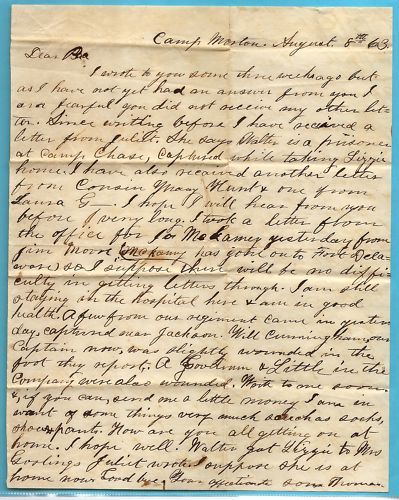 Camp Morton. August. 8th 63
Dear Pa
I wrote to you some three weeks ago but
as I have not yet had an answer from you I
am fearful you did not receive my other let-
ter. Since writing before I have received a
letter from Juliet. She says Walter is a prisoner
at Camp Chase, captured while taking Lizzie
home. I have also received another letter
from Cousin Mary Hunt & one from
Laura G—. I hope I will hear from you
before very long. I took a letter from
the office for McLamey yesterday from
Jim Moore (McLamy has gone on to Fort Dela-
ware) so I suppose there will be no diffi-
culty in getting letters through. I am still
staying in the hospital here & am in good
health. A few from our regiment came in yester-
day, captured near Jackson. Will Cunningham, our
Captain now, was slightly wounded in the
foot they report. A Goodwin & Little in the
Company were also wounded. Write to me soon
& if you can, send me a little money I am in
want of some things very much such as socks,
shoes & pants. How are you all getting on at
home. I hope well. Walter got Lizzie to Mrs
Goslings Juliet wrote. suppose she is at
home now. Good bye, Your affectionate son Thomas